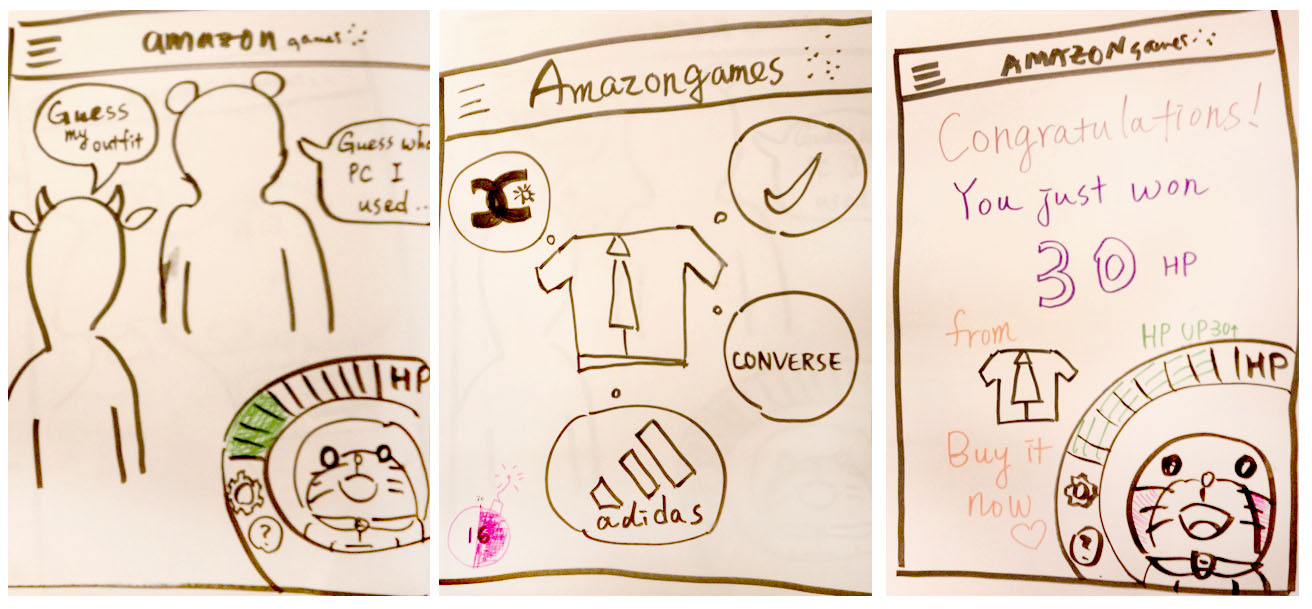 amazon games
Guess
my
outfit
Guess
PC I
used..
HP
?
Amazongames
CONVERSE
adidas
16
AMAZON games
Congratulations!
You just won
30 HP
from
HP UP30↑
HP
Buy it
now
?